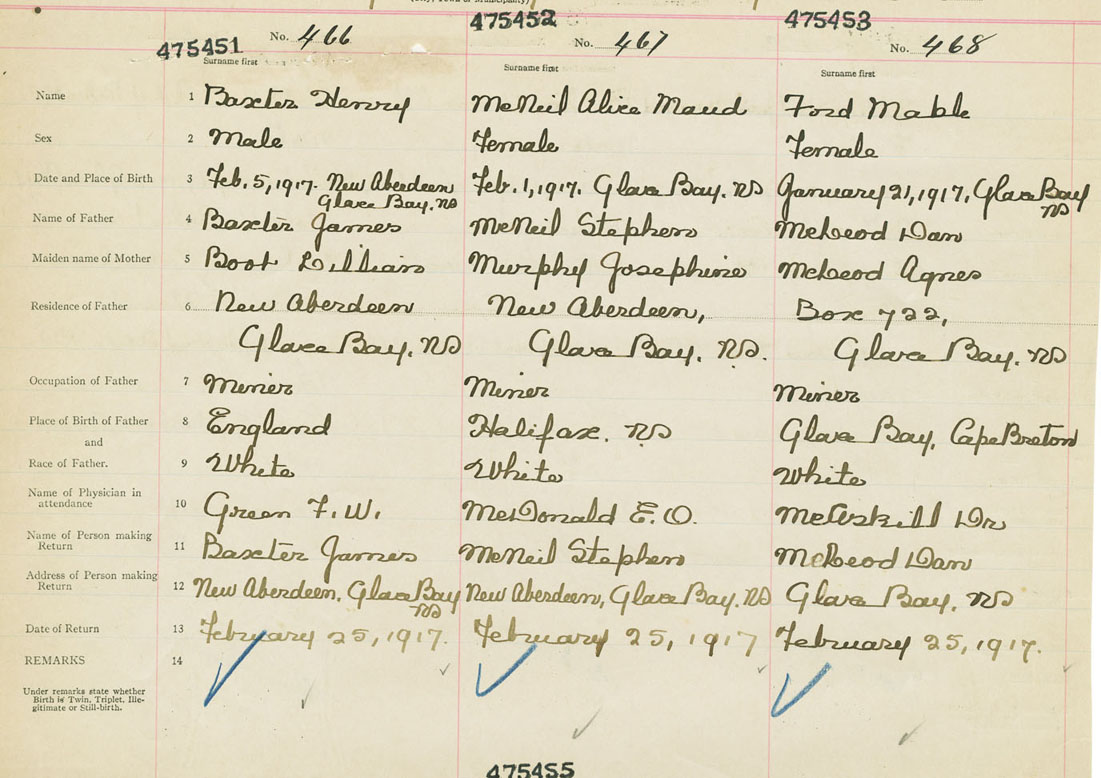 (City, Town or Municipality)
475451 475452 475453
No. 466 No. 467 No. 468
Surname first Surname first Surname first
Name 1 Baxter Henry McNeil Alice Maud Ford Mable
Sex 2 Male Female Female
Date and Place of Birth 3 Feb. 5, 1917. New Aberdeen Feb. 1, 1917. Glace Bay. NS January 21, 1917, Glace Bay
Glace Bay. NS NS
Name of Father 4 Baxter James McNeil Stephen McLeod Dan
Maiden name of Mother 5 Boot Lillian Murphy Josephine McLeod Agnes
Residence of Father 6 New Aberdeen New Aberdeen, Box 722,
Glace Bay. NS Glace Bay. NS. Glace Bay. NS
Occupation of Father 7 Miner Miner Miner
Place of Birth of Father 8 England Halifax. NS Glace Bay, Cape Breton
and
Race of Father. 9 White White White
Name of Physician in
attendance 10 Green F. W. McDonald E. O. McAskill Dr
Name of Person making
Return 11 Baxter James McNeil Stephen McLeod Dan
Address of Person making
Return 12 New Aberdeen, Glace Bay New Aberdeen, Glace Bay. NS Glace Bay. NS
NS
Date of Return 13 February 25, 1917. February 25, 1917 February 25, 1917.
REMARKS 14
Under remarks state whether
Birth is Twin, Triplet, Ille-
gitimate or Still-birth.
475455